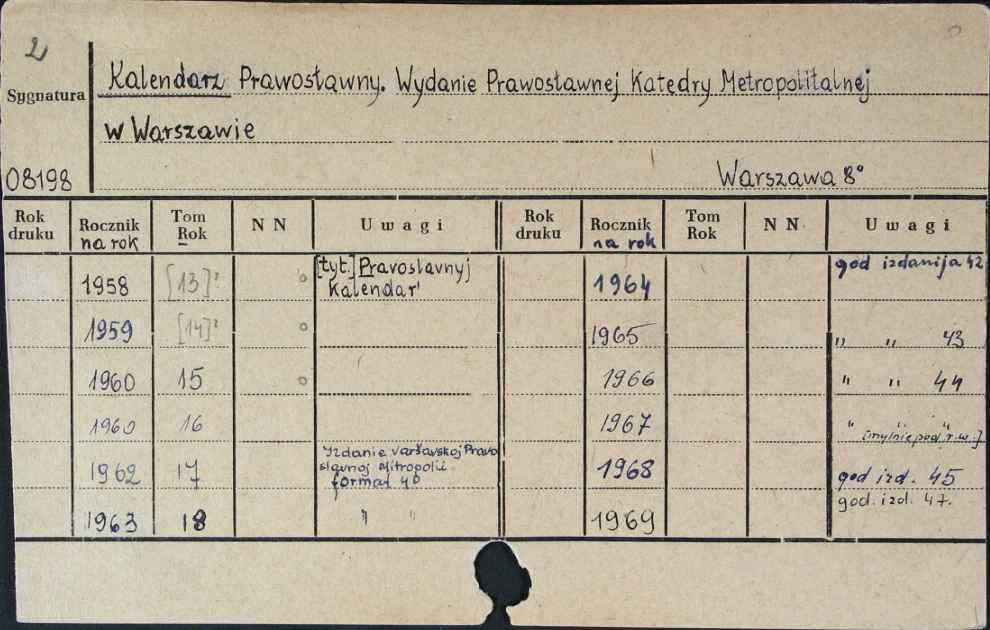 2
Kalendarz Prawosławny. Wydanie Prawosławnej Katedry Metropolitalnej
Sygnatura
w Warszawie
08198
Warszawa 8°
Rok druku Rocznik na rok Tom Rok N N Uwagi Rok druku Rocznik na rok Tom Rok N N. Uwagi
1958 [13]² [tyt.] Pravoslavnyj Kalendar' 1964 god izdanija 42
1959 [14]² 1965 " " 43
1960 15 1966 " " 44
1960 16 1967 " " " [mylnie pod. r.w.]
1962 17 Izdanie varšavskoj Pravoslavnoj Mitropolii format 4° 1968 god izd. 45
1963 18 " " 1969 god. izd. 47.